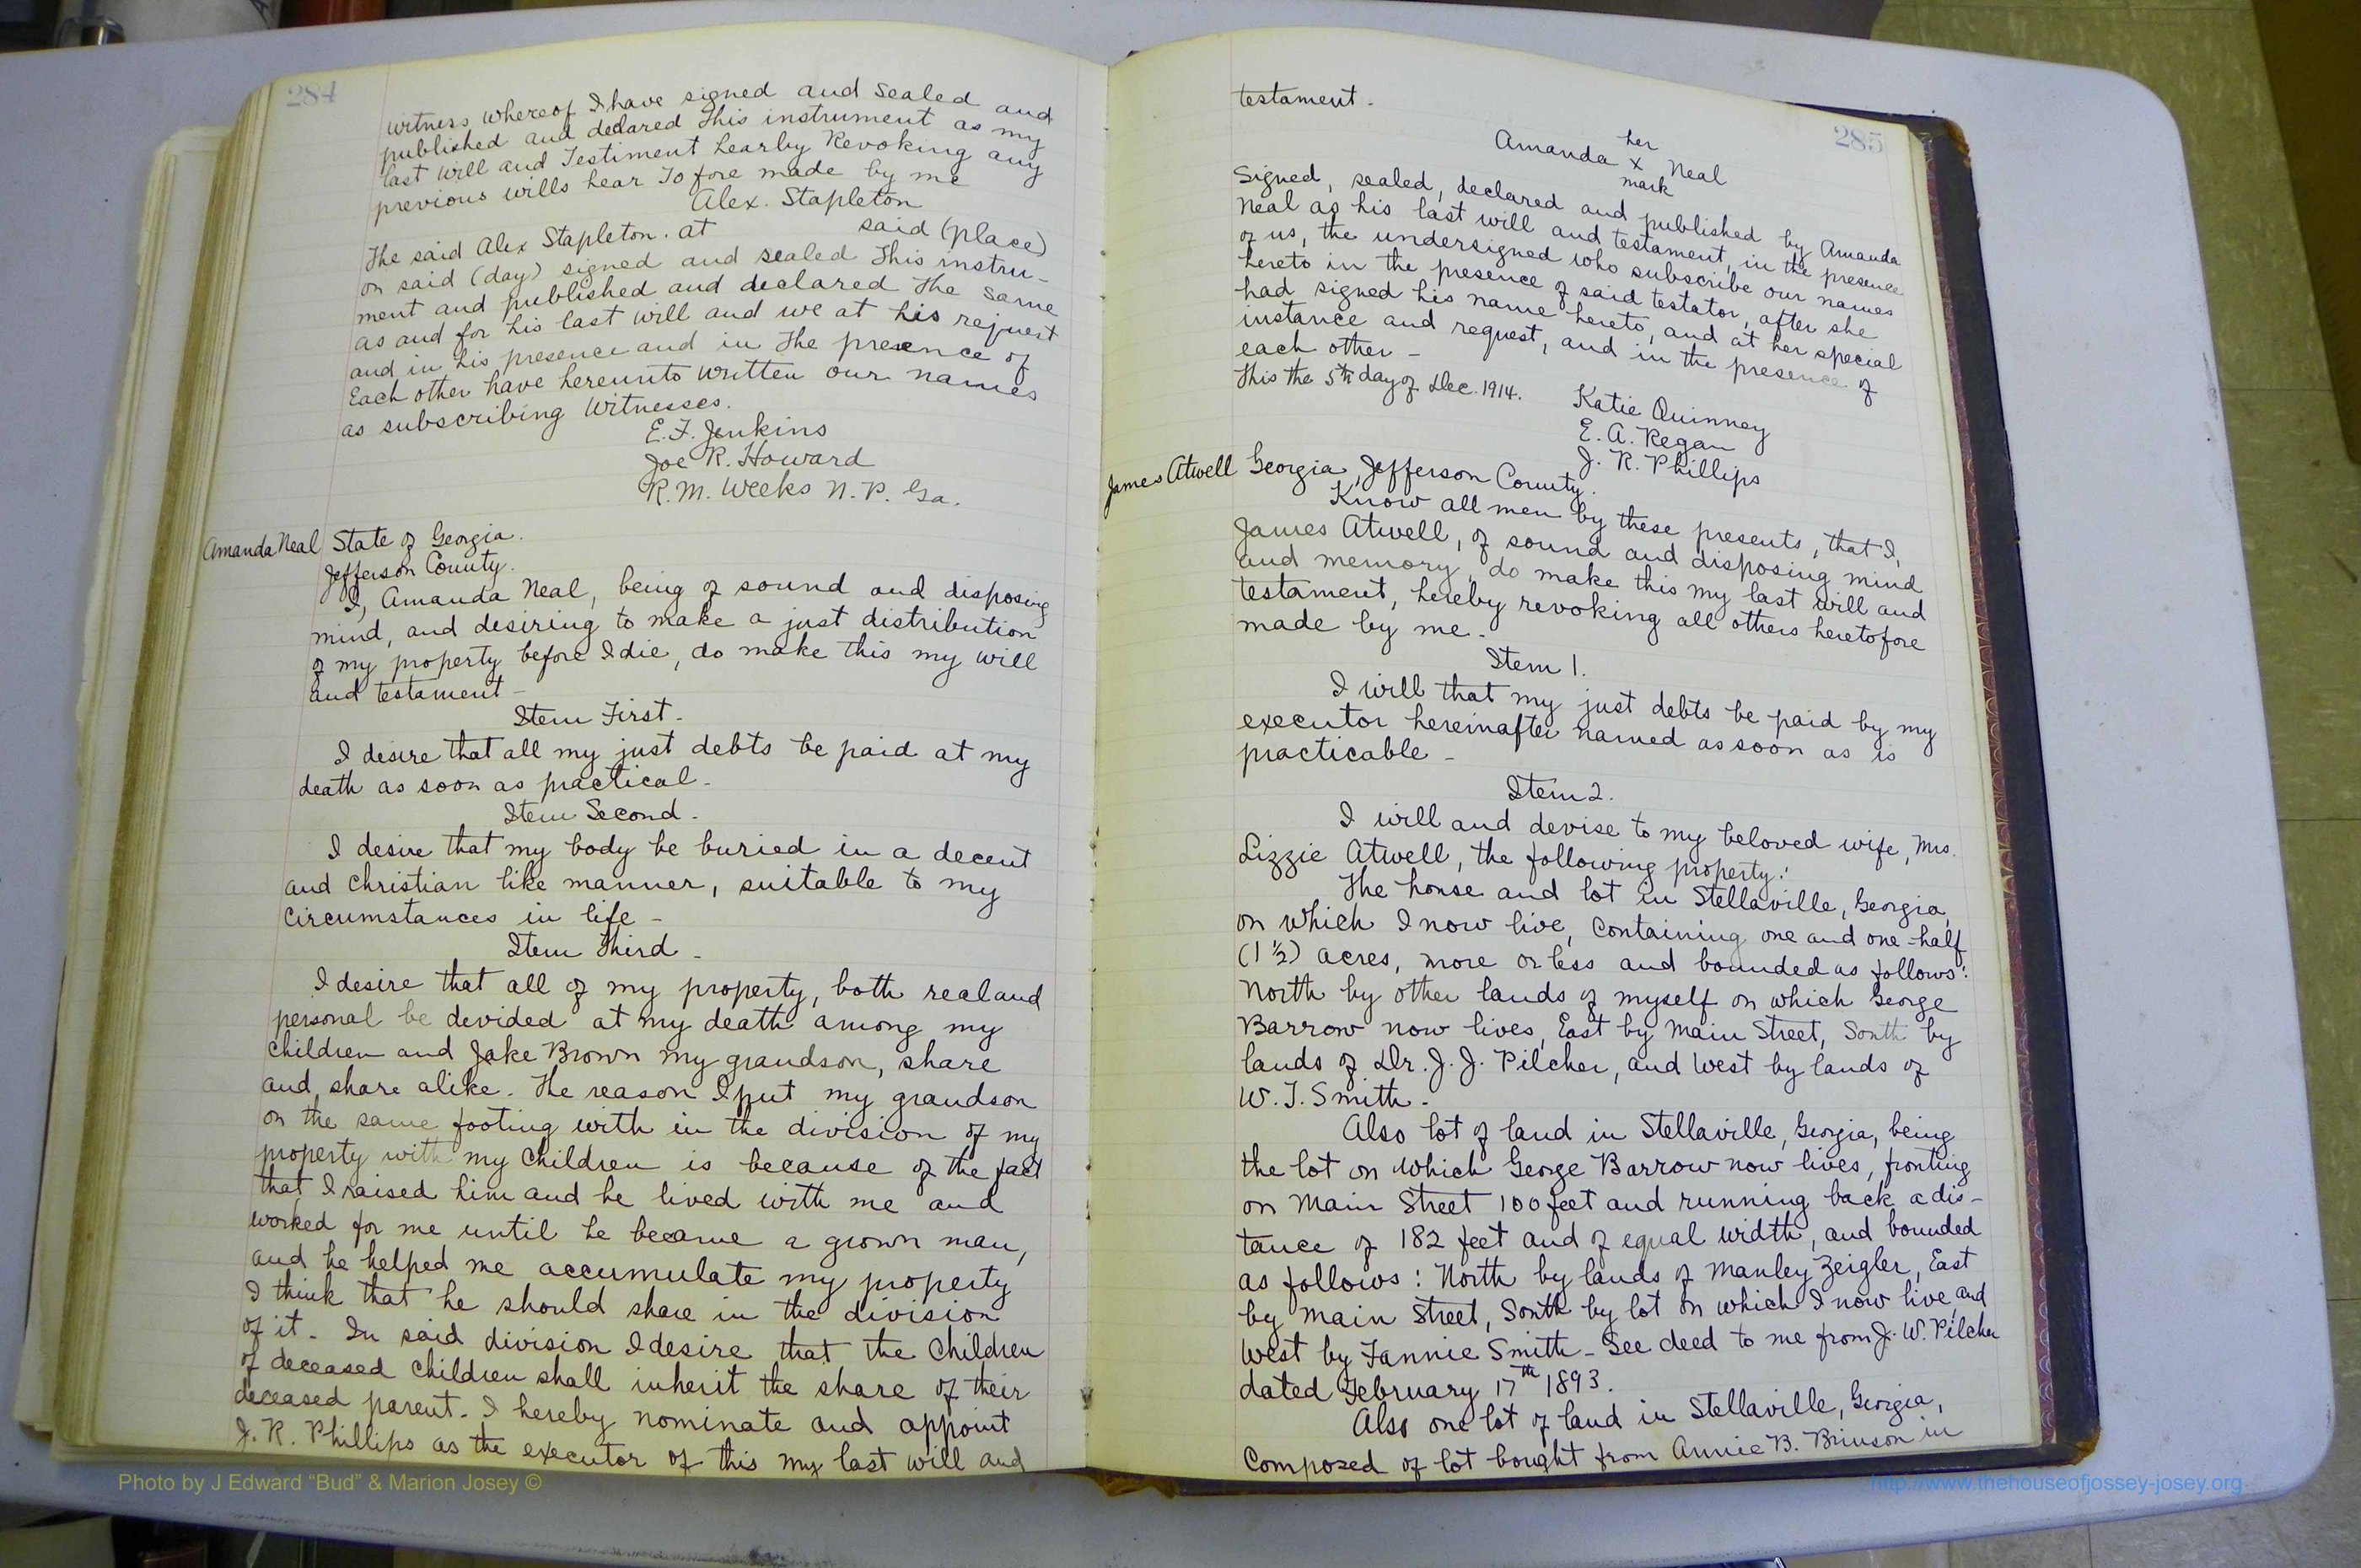 284
witness whereof I have signed and sealed and
published and declared this instrument as my
last will and Testiment hearby Revoking any
previous wills hear To fore made by me
Alex. Stapleton
The said Alex Stapleton. at said (place)
on said (day) signed and sealed This instru-
ment and published and declared The same
as and for his last will and we at his request
and in his presence and in The presence of
Each other have hereunto written our names
as subscribing Witnesses.
E. F. Jenkins
Joe R. Howard
R. M. Weeks N. P. Ga.
Amanda Neal State of Georgia.
Jefferson County.
I, Amanda Neal, being of sound and disposing
mind, and desiring to make a just distribution
of my property before I die, do make this my will
and testament -
Item First.
I desire that all my just debts be paid at my
death as soon as practical.
Item Second.
I desire that my body be buried in a decent
and Christian like manner, suitable to my
circumstances in life -
Item Third.
I desire that all of my property, both real and
personal be devided at my death among my
children and Jake Brown my grandson, share
and share alike. The reason I put my grandson
on the same footing with in the division of my
property with my children is because of the fact
that I raised him and he lived with me and
worked for me until he became a grown man,
and he helped me accumulate my property
I think that he should share in the division
of it. In said division I desire that the children
of deceased children shall inherit the share of their
deceased parent. I hereby nominate and appoint
J. R. Phillips as the executor of this my last will and
285
testament.
her
Amanda x Neal
mark
Signed, sealed, declared and published by Amanda
Neal as his last will and testament, in the presence
of us, the undersigned who subscribe our names
hereto in the presence of said testator, after she
had signed his name hereto, and at her special
instance and request, and in the presence of
each other -
This the 5th day of Dec. 1914.
Katie Quinney
E. A. Regan
J. R. Phillips
James Atwell Georgia, Jefferson County.
Know all men by these presents, that I,
James Atwell, of sound and disposing mind
and memory, do make this my last will and
testament, hereby revoking all others heretofore
made by me.
Item 1.
I will that my just debts be paid by my
executor hereinafter named as soon as is
practicable -
Item 2.
I will and devise to my beloved wife, Mrs.
Lizzie Atwell, the following property:
The house and lot in Stellaville, Georgia,
on which I now live, containing one and one-half
(1 ½) acres, more or less and bounded as follows:
North by other lands of myself on which George
Barrow now lives, East by Main Street, South by
lands of Dr. J. J. Pilcher, and West by lands of
W. T. Smith.
Also lot of land in Stellaville, Georgia, being
the lot on which George Barrow now lives, fronting
on Main Street 100 feet and running back a dis-
tance of 182 feet and of equal width, and bounded
as follows: North by lands of Manley Zeigler, East
by Main Street, South by lot on which I now live, and
West by Fannie Smith - See deed to me from J. W. Pilcher
dated February 17th 1893.
Also one lot of land in Stellaville, Georgia,
Composed of lot bought from Annie B. Brinson in
Photo by J Edward “Bud” & Marion Josey ©
http://www.thehouseofjossey-josey.org